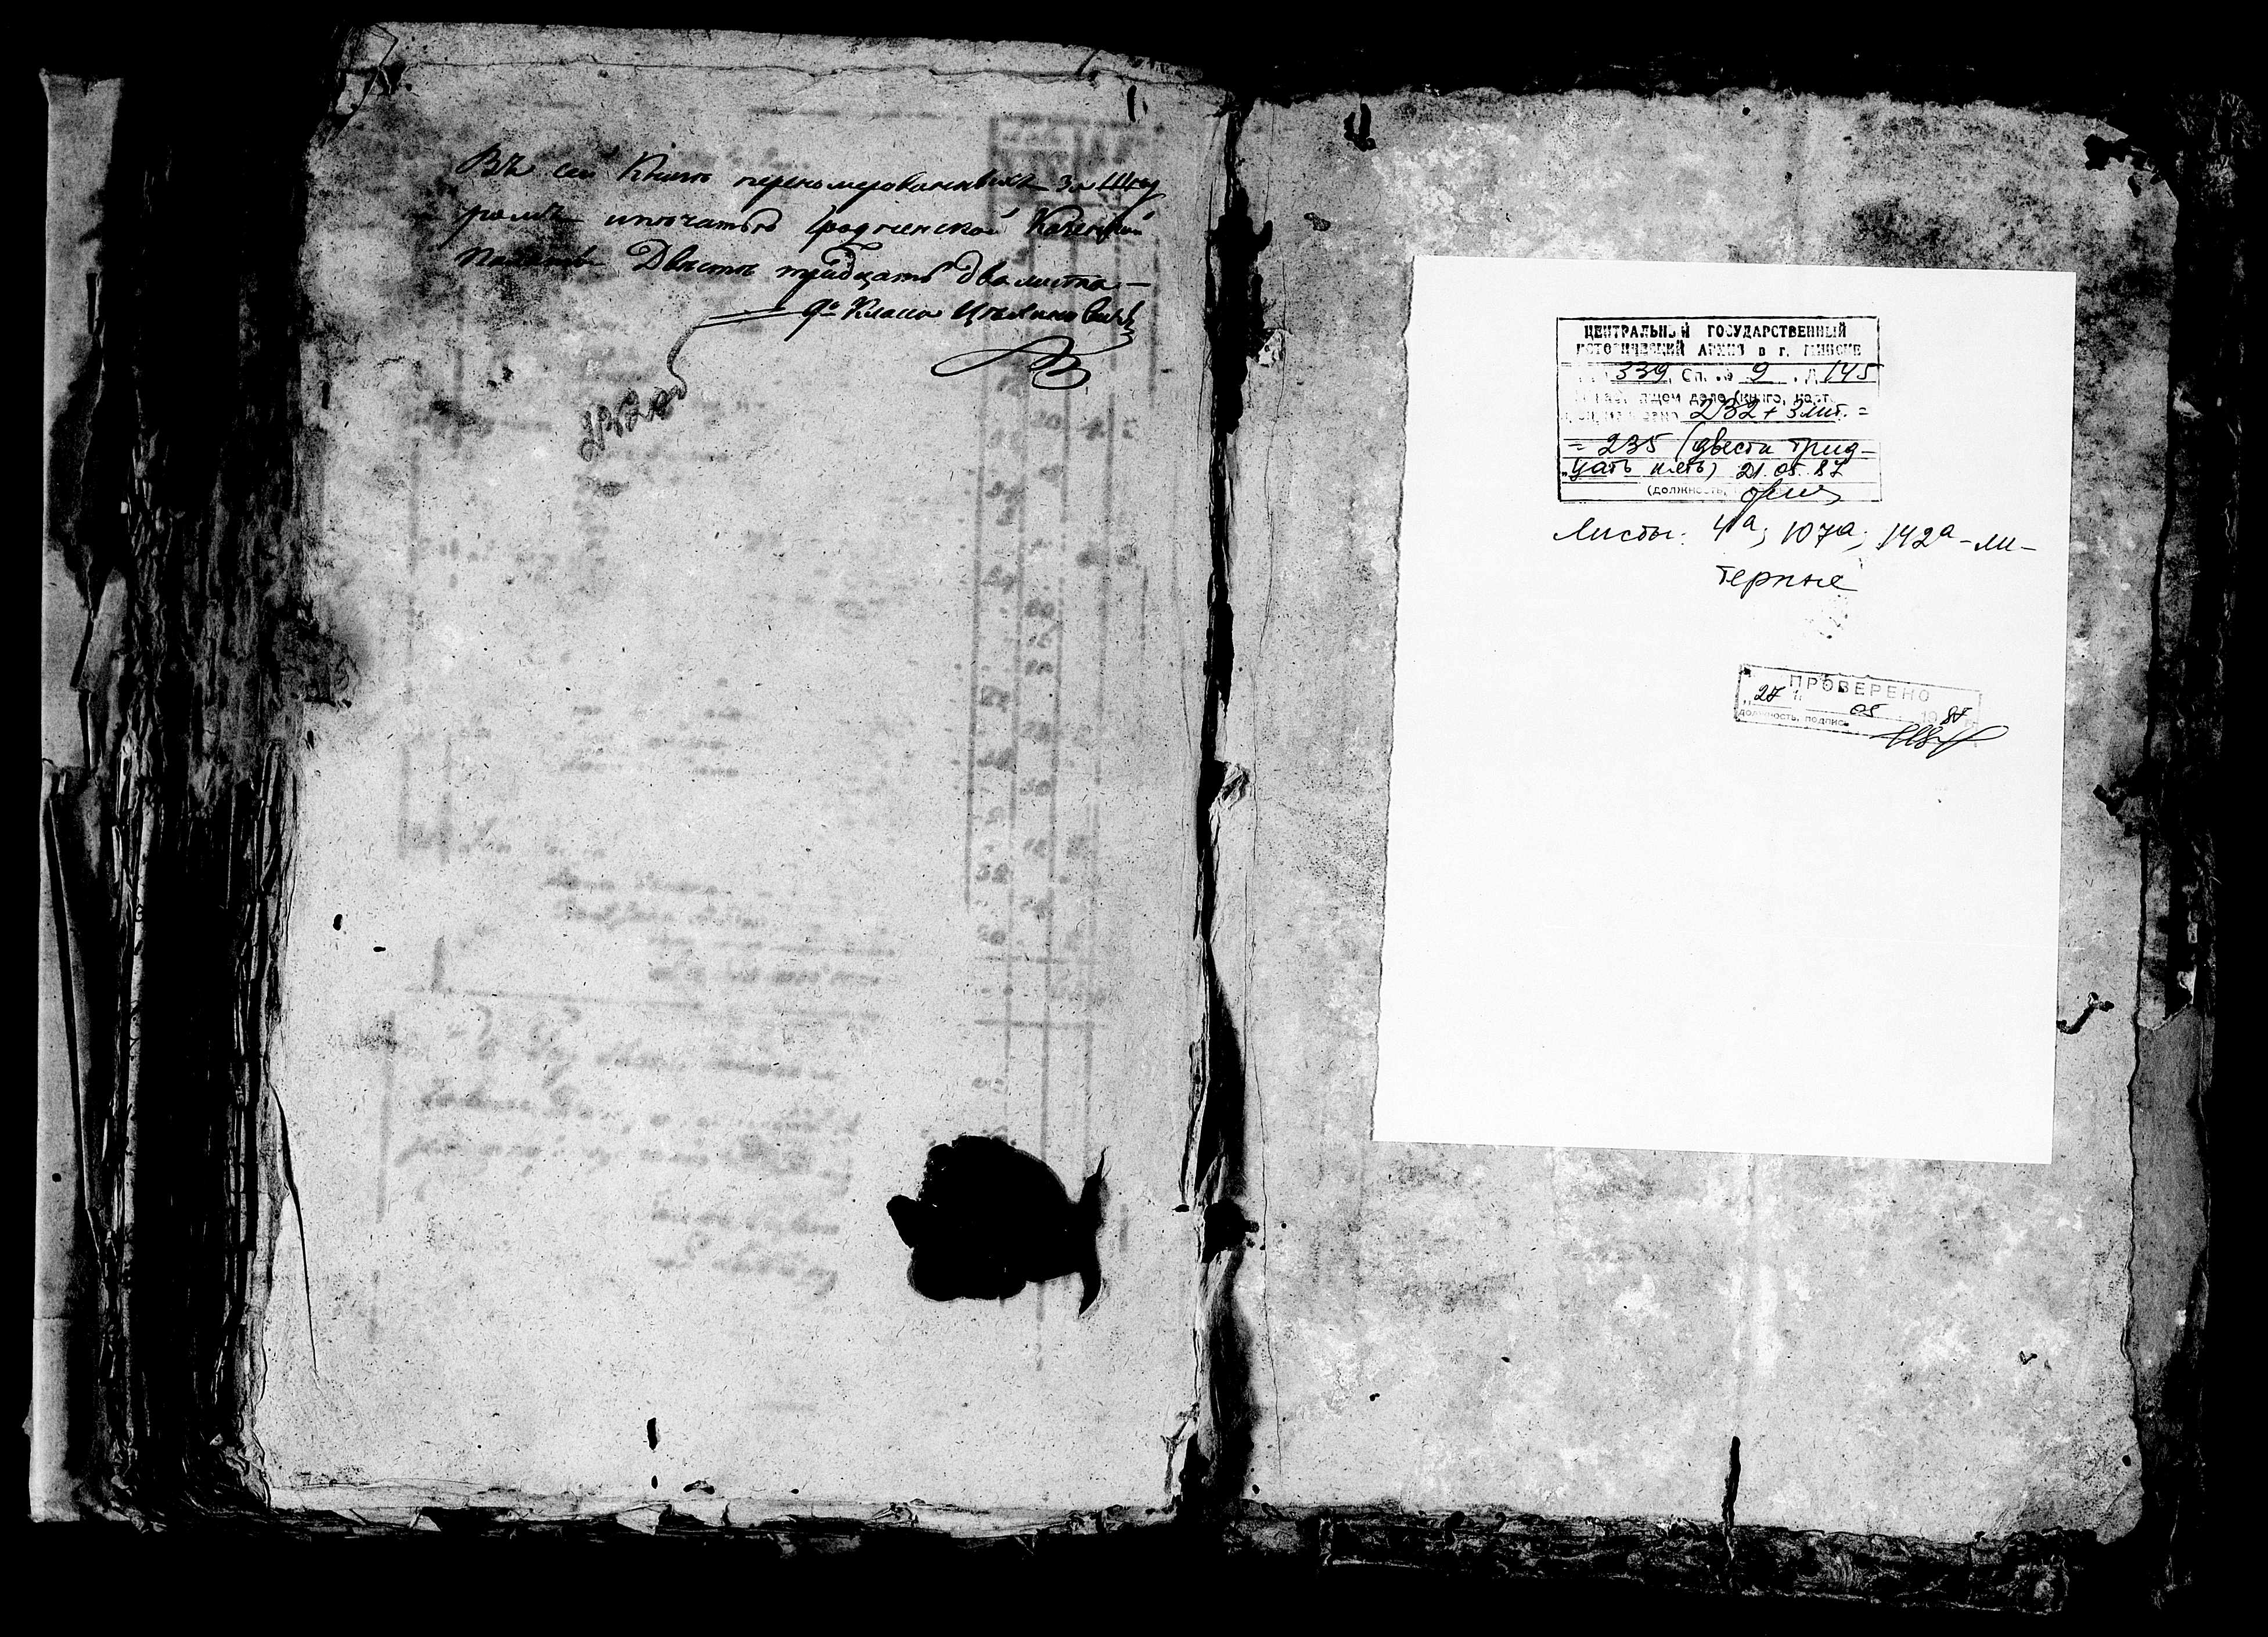 Въ сей Книгѣ перенумерованныхъ за Шну
ромъ и печатью Гродненской Казенной
Палаты Двѣсти тридцать два листа —
9го Класса
ЦЕНТРАЛЬНЫЙ ГОСУДАРСТВЕННЫЙ
ИСТОРИЧЕСКИЙ АРХИВ в г. МИНСКЕ
339, Оп. № 9, Д. 145
дело (книго, карт.
232 + 3 лит. =
= 235 (двести трид-
цать пять) 21.05.87
(должность,
Листы: 4а; 107а; 142а - ли-
терные
ПРОВЕРЕНО
„27" 05 1987 г.
должность, подпись